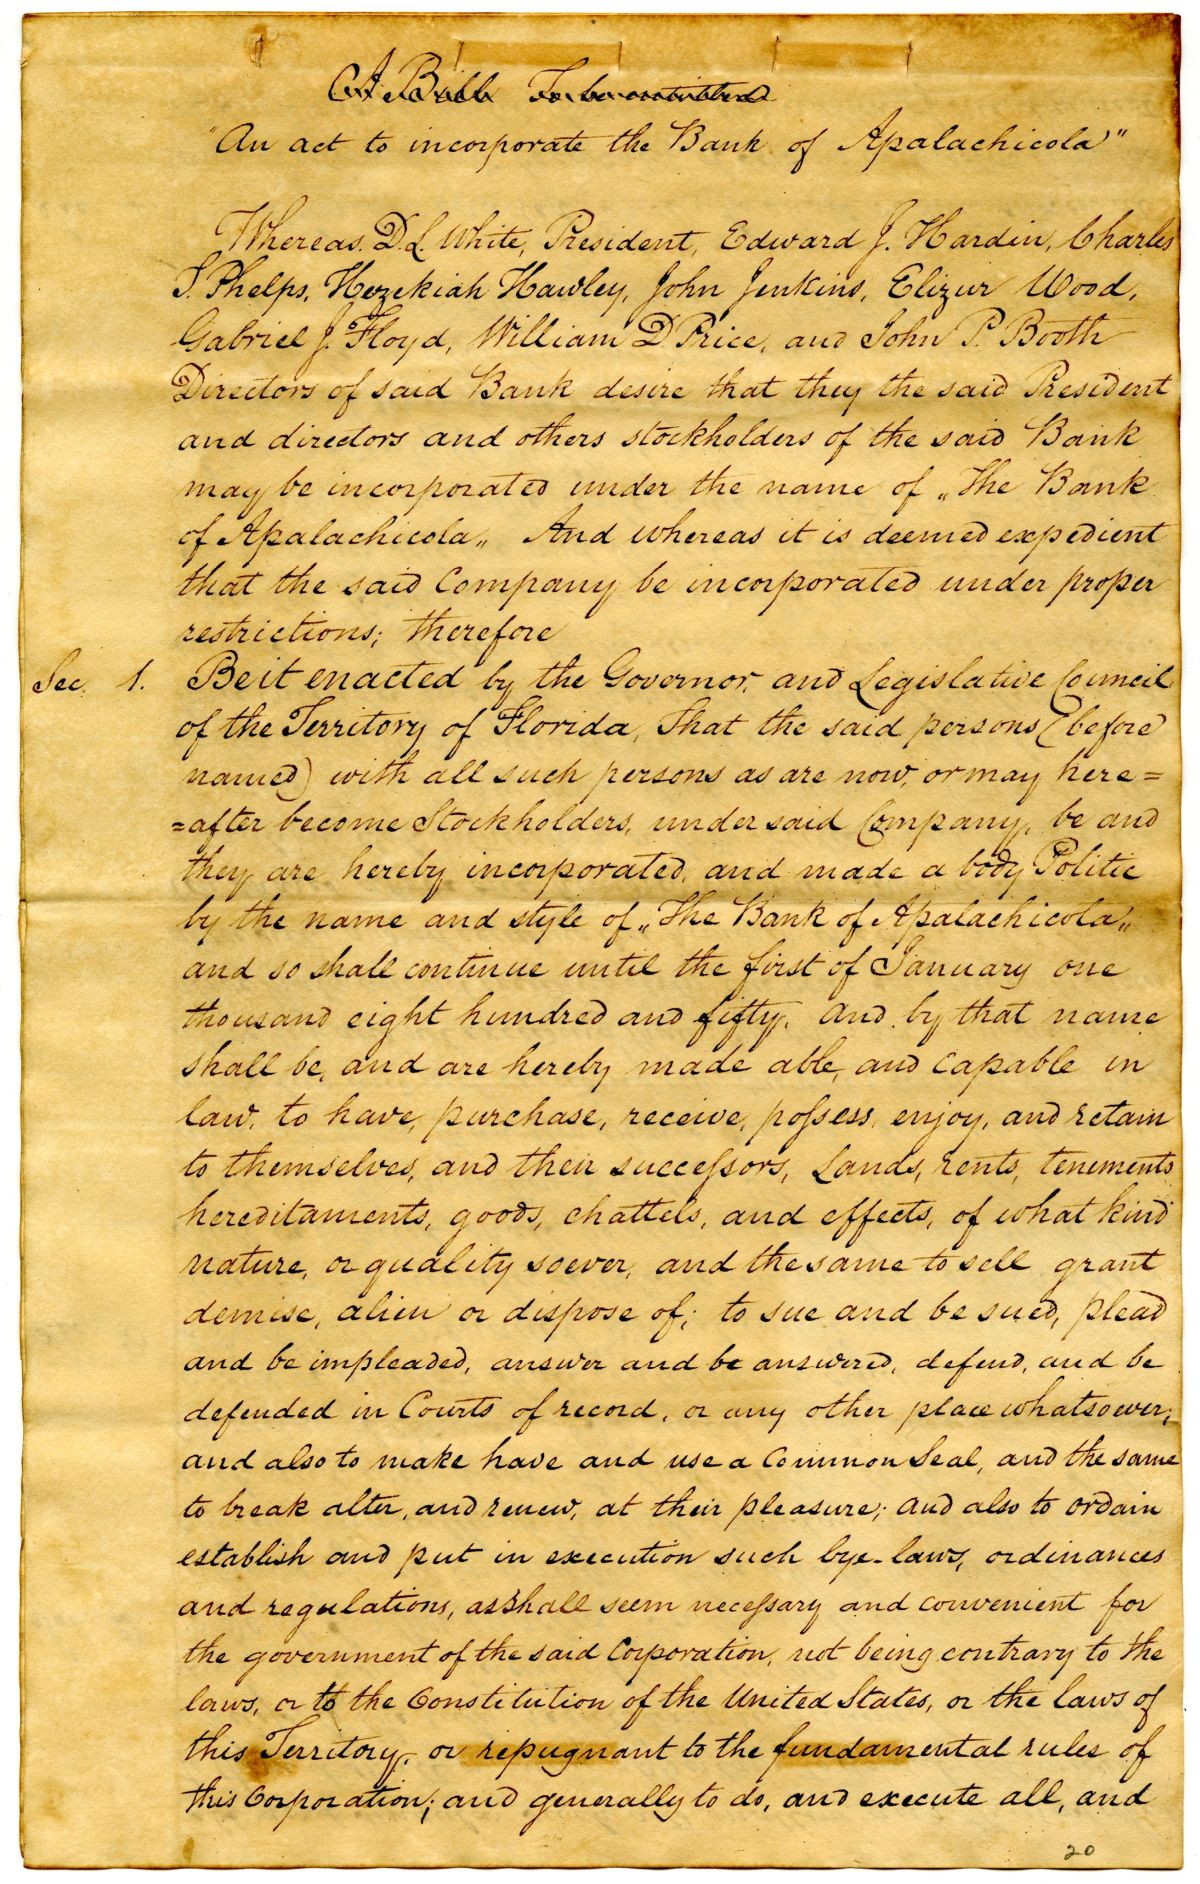 A Bill To be entitled
"An act to incorporate the Bank of Apalachicola"
Whereas, D. L. White, President, Edward J. Hardin, Charles
S. Phelps, Hezekiah Hawley, John Jenkins, Elizur Wood,
Gabriel J. Floyd, William D. Price, and John P. Booth
Directors of said Bank desire that they the said President
and directors and others stockholders of the said Bank
may be incorporated under the name of „The Bank
of Apalachicola„ And whereas it is deemed expedient
that the said Company be incorporated under proper
restrictions; therefore
Sec. 1. Be it enacted by the Governor, and Legislative Council
of the Territory of Florida, That the said persons (before
named) with all such persons as are now, or may here=
=after become Stockholders, under said Company, be and
they are hereby incorporated, and made a body Politic
by the name and style of „The Bank of Apalachicola„
and so shall continue until the first of January one
thousand eight hundred and fifty. and by that name
shall be, and are hereby made able, and capable in
law, to have, purchase, receive, possess, enjoy, and retain
to themselves, and their successors, Lands, rents, tenements
hereditaments, goods, chattels, and effects, of what kind
nature, or quality soever, and the same to sell grant
demise, alien or dispose of; to sue and be sued, plead
and be impleaded, answer and be answered, defend, and be
defended in Courts of record, or any other place whatsoever;
and also to make have and use a Common Seal, and the same
to break alter, and renew, at their pleasure; and also to ordain
establish and put in execution such bye-laws, ordinances
and regulations, as shall seem necessary and convenient for
the government of the said Corporation, not being contrary to the
laws, or to the Constitution of the United States, or the laws of
this Territory, or repugnant to the fundamental rules of
this Corporation; and generally to do, and execute all, and
20